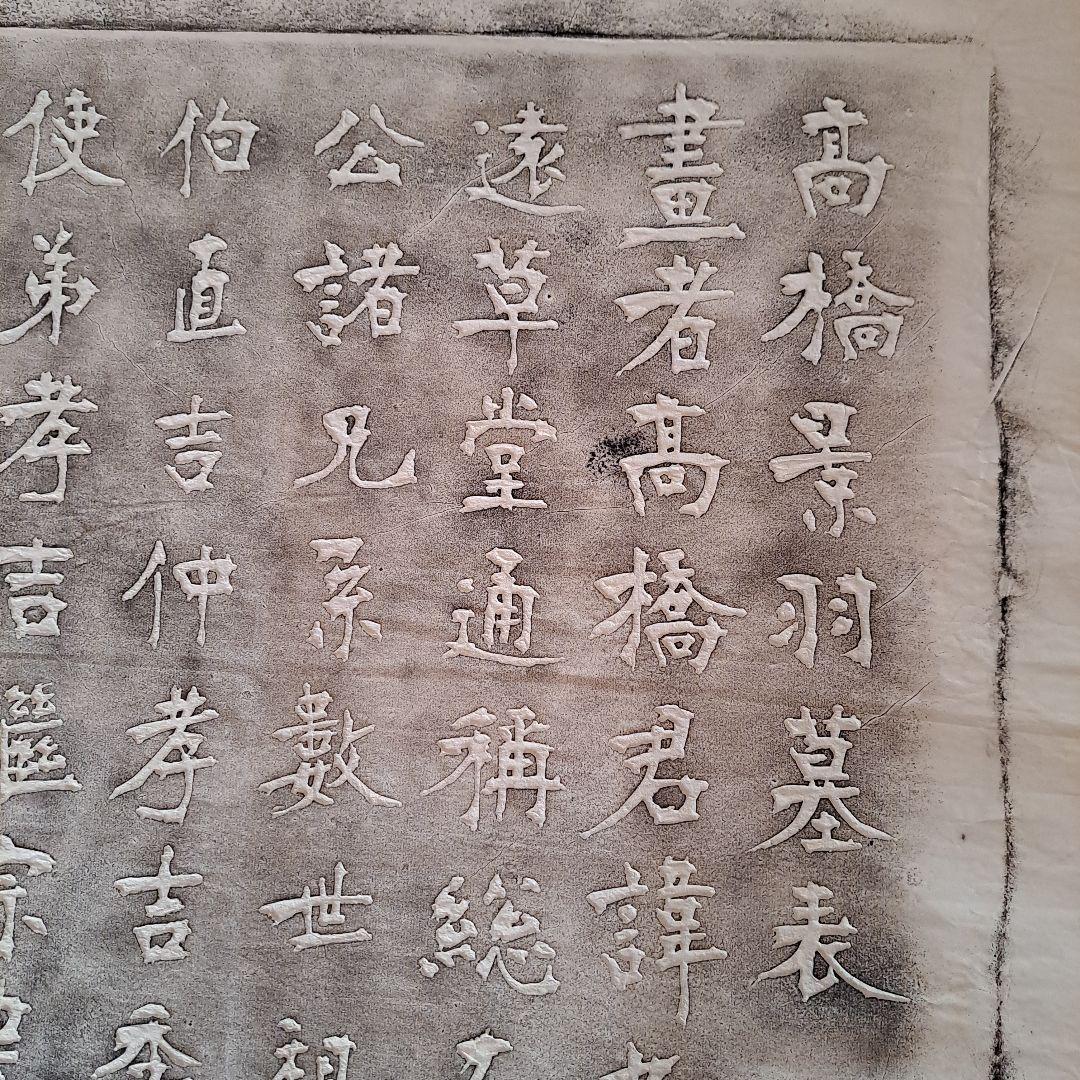 高橋景羽墓表
畫者高橋君諱
遠草堂通稱総
公諸兄系數世祖
伯直吉仲孝吉季
使弟孝吉繼宗